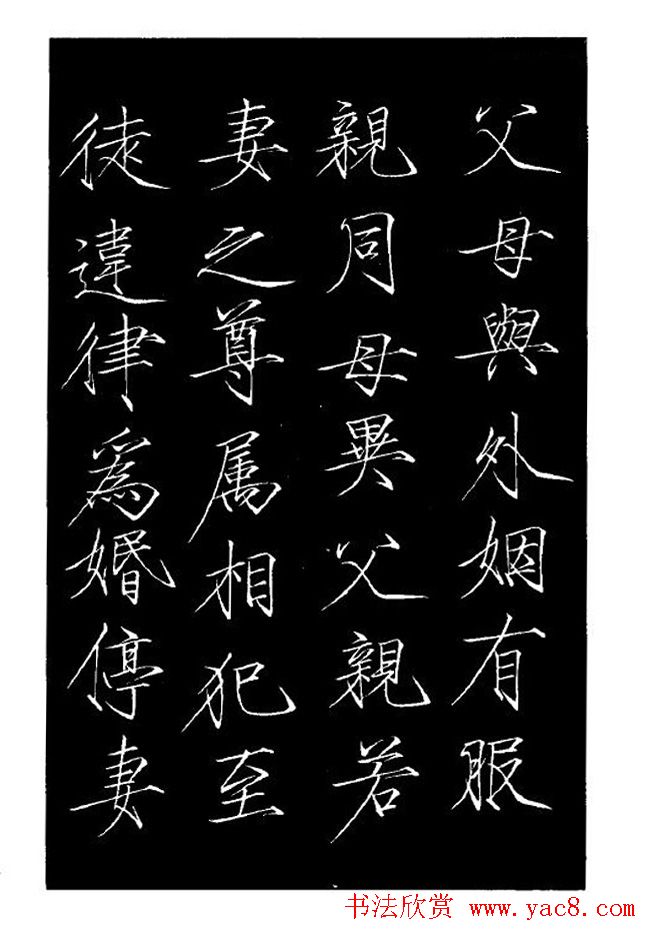 父母與外姻有服
親同母異父親若
妻之尊属相犯至
徒違律為婚停妻
书法欣赏 www.yac8.com